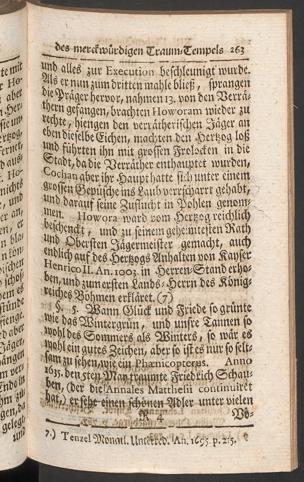 des merckwürdigen Traum-Tempels 263
und alles zur Execution beschleunigt wurde.
Als er nun zum dritten mahle bließ, sprangen
die Präger hervor, nahmen 13. von den Verrä-
thern gefangen, brachten Howoram wieder zu
rechte, hiengen den verrätherischen Jäger an
eben dieselbe Eichen, machten den Hertzog loß
und führten ihn mit grossen Frolocken in die
Stadt, da die Verräther enthauptet wurden,
Cochan aber ihr Haupt hatte sich unter einem
grossen Gepüsche ins Laub verscharrt gehabt,
und darauf seine Zuflucht in Pohlen genom-
men. Howora ward vom Hertzog reichlich
beschenckt, und zu seinem geheimtesten Rath
und Obersten Jägermeister gemacht, auch
endlich auf des Hertzogs Anhalten von Kayser
Henrico II. An. 1003. in Herren-Stand erho-
ben, und zum ersten Lands-Herrn des König-
reiches Böhmen erkläret. (7)
§. 5. Wann Glück und Friede so grünte
wie das Wintergrün, und unsre Tannen so
wohl des Sommers als Winters, so wär es
wohl ein gutes Zeichen, aber so ist es nur so selt-
sam zu sehen, wie ein Phœnicopterus. Anno
1635. den 5ten May traumte Friedrich Schau-
ben, (der die Annales Matthein continuiret
hat,) er sehe einen schönen Adler unter vielen
R 4 Vö-
7.) Tenzel Monatl. Unterred. An. 1695. p. 215.